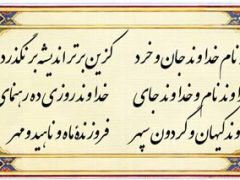 نام خداوند جان و خرد کزین برتر اندیشه برنگذرد
وند نام و خداوند جای خداوند روزی ده رهنمای
وند کیهان و گردون سپهر فروزندهٔ ماه و ناهید و مهر